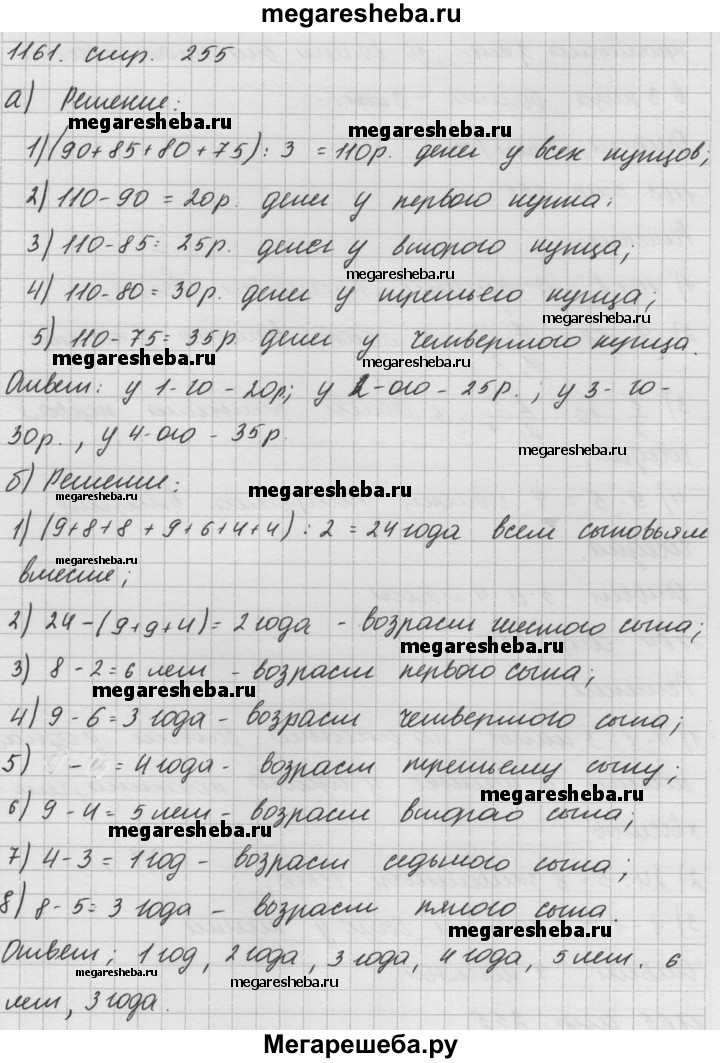 megaresheba.ru
1161. стр. 255
а) Решение:
megaresheba.ru
megaresheba.ru
1) (90+85+80+75) : 3 = 110р. денег у всех купцов;
2) 110-90 = 20р. денег у первого купца;
3) 110-85= 25р. денег у второго купца;
megaresheba.ru
4) 110-80= 30р. денег у третьего купца;
megaresheba.ru
5) 110-75= 35р. денег у четвертого купца.
megaresheba.ru
megaresheba.ru
Ответ: у 1-го - 20р; у 2-ого - 25р.; у 3-го-
30р., у 4-ого - 35р.
megaresheba.ru
б) Решение:
megaresheba.ru
megaresheba.ru
1) (9+8+8+9+6+4+4) : 2 = 24 года всем сыновьям
megaresheba.ru
вместе;
2) 24-(9+9+4)= 2 года - возраст шестого сына;
megaresheba.ru
3) 8-2=6 лет - возраст первого сына;
megaresheba.ru
4) 9-6=3 года - возраст четвертого сына;
5) - = 4 года - возраст третьему сыну;
megaresheba.ru
6) 9-4= 5 лет - возраст второго сына;
megaresheba.ru
7) 4-3= 1 год - возраст седьмого сына;
8) 8-5= 3 года - возраст пятого сына.
megaresheba.ru
Ответ; 1 год, 2 года, 3 года, 4 года, 5 лет. 6
megaresheba.ru
megaresheba.ru
лет, 3 года.
Мегарешеба.ру